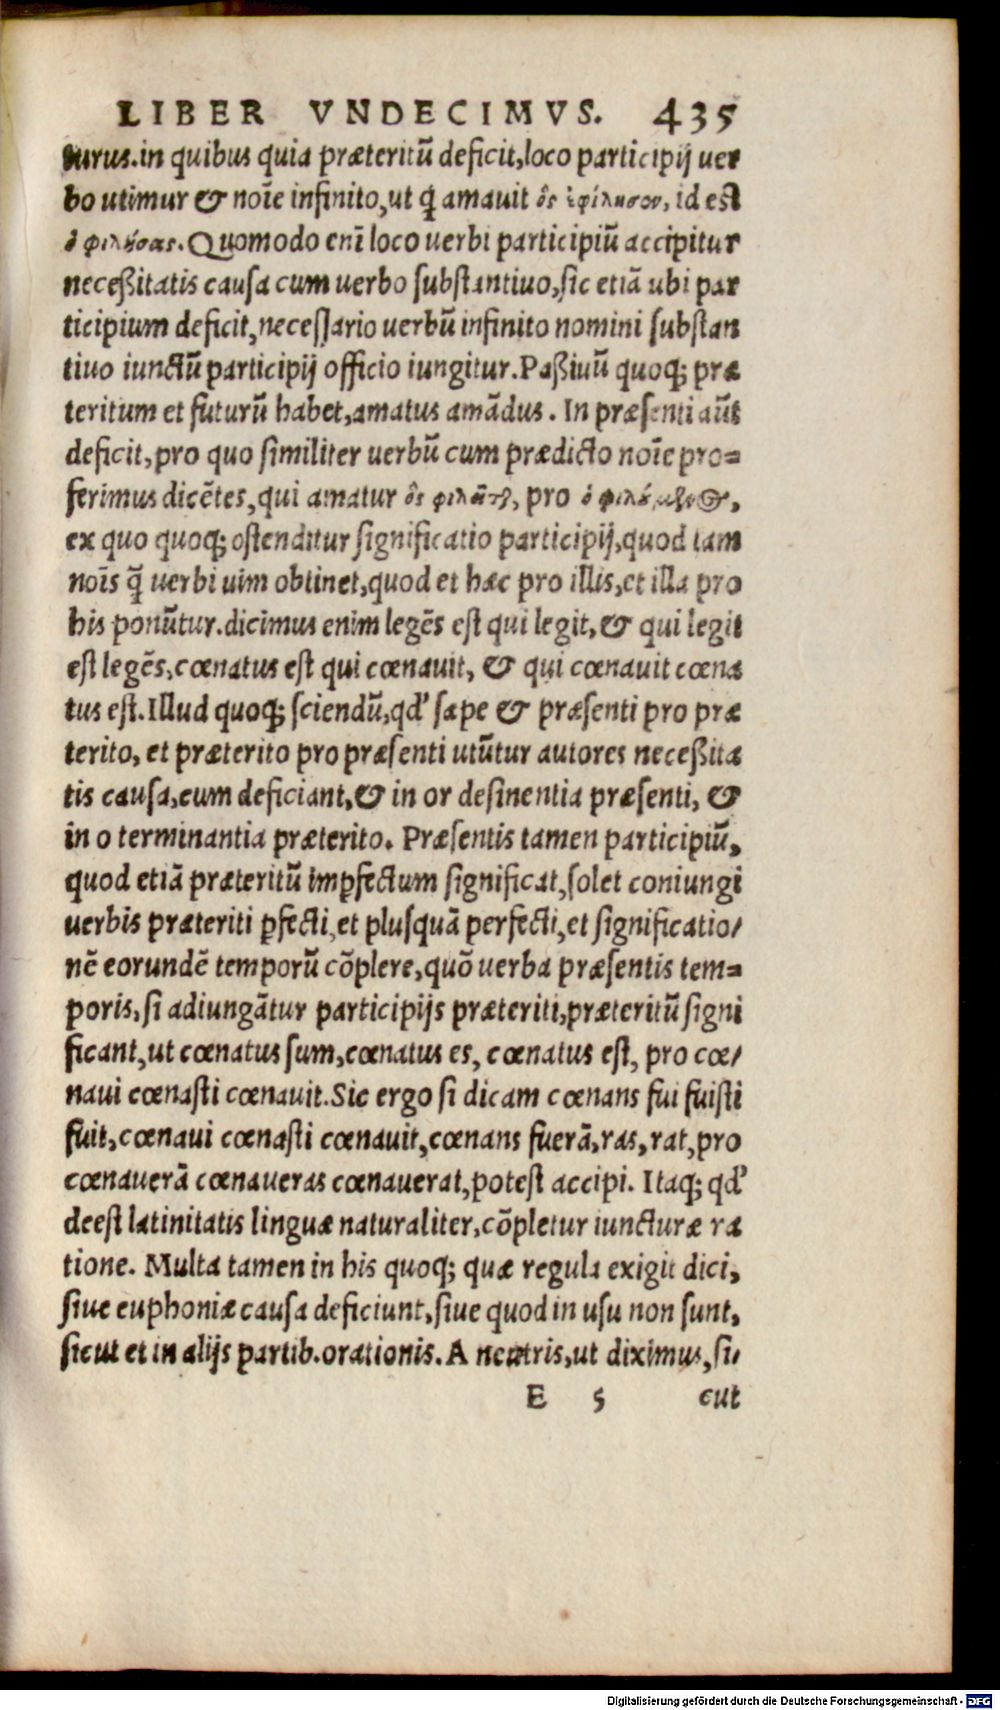 LIBER VNDECIMVS. 435
turus.in quibus quia præteritū deficit,loco participij uer
bo utimur & noīe infinito,ut q̄ amauit ὃς ἐφίλησεν, id est
ὁ φιλήσας. Quomodo enī loco uerbi participiū accipitur
neceßitatis causa cum uerbo substantiuo,sic etiā ubi par
ticipium deficit,necessario uerbū infinito nomini substan
tiuo iunctū participij officio iungitur.Paßiuū quoq; præ
teritum et futurū habet,amatus amādus. In præsenti aūt
deficit,pro quo similiter uerbū cum prædicto noīe pro=
ferimus dicētes,qui amatur ὃς φιλεῖται, pro ὁ φιλούμενος,
ex quo quoq; ostenditur significatio participij,quod tam
noīs q̄ uerbi uim obtinet,quod et hæc pro illis,et illa pro
his ponūtur.dicimus enim legēs est qui legit,& qui legit
est legēs,cœnatus est qui cœnauit, & qui cœnauit cœna
tus est.Illud quoq; sciendū,qd' sæpe & præsenti pro præ
terito, et præterito pro præsenti utūtur autores neceßita
tis causa,cum deficiant,& in or desinentia præsenti, &
in o terminantia præterito. Præsentis tamen participiū,
quod etiā præteritū imꝑfectum significat,solet coniungi
uerbis præteriti ꝑfecti,et plusquā perfecti,et significatio/
nē eorundē temporū cōplere,quō uerba præsentis tem=
poris,si adiungātur participijs præteriti,præteritū signi
ficant,ut cœnatus sum,cœnatus es, cœnatus est, pro cœ/
naui cœnasti cœnauit.Sic ergo si dicam cœnans fui fuisti
fuit,cœnaui cœnasti cœnauit,cœnans fuerā,ras,rat,pro
cœnauerā cœnaueras cœnauerat,potest accipi. Itaq; qd'
deest latinitatis linguæ naturaliter,cōpletur iuncturæ ra
tione. Multa tamen in his quoq; quæ regula exigit dici,
siue euphoniæ causa deficiunt,siue quod in usu non sunt,
sicut et in alijs partib.orationis.A neutris,ut diximus,si/
E 5 cut
Digitalisierung gefördert durch die Deutsche Forschungsgemeinschaft - DFG